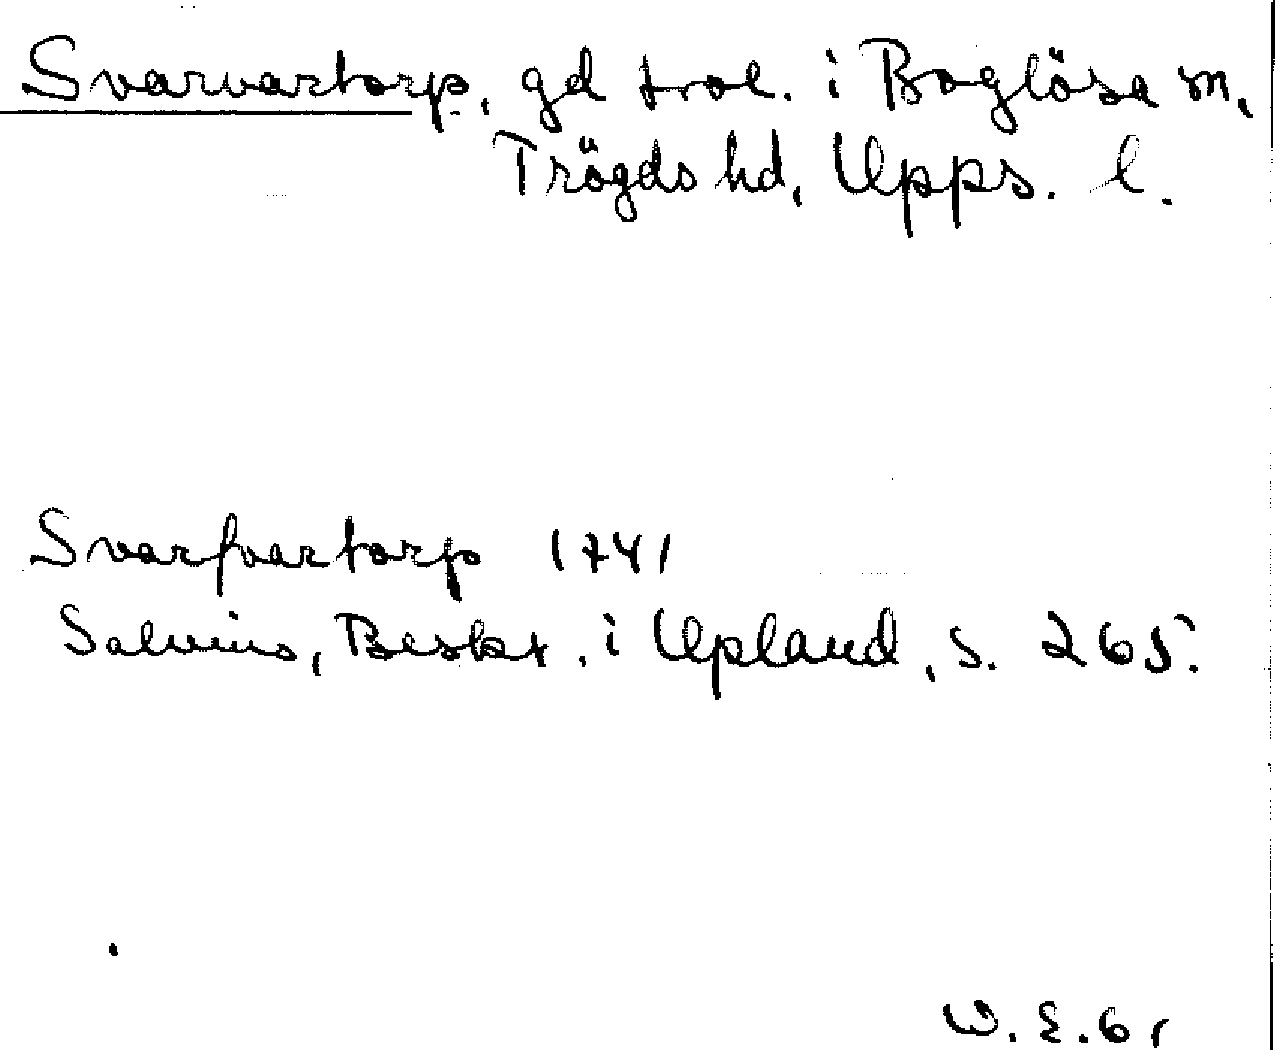 Svarvartorp, gd trol. i Boglösa sn,
Trögds hd, Upps. l.
Svarfvartorp 1741
Salvius, Beskr. i Upland, s. 265.
W. E. 61